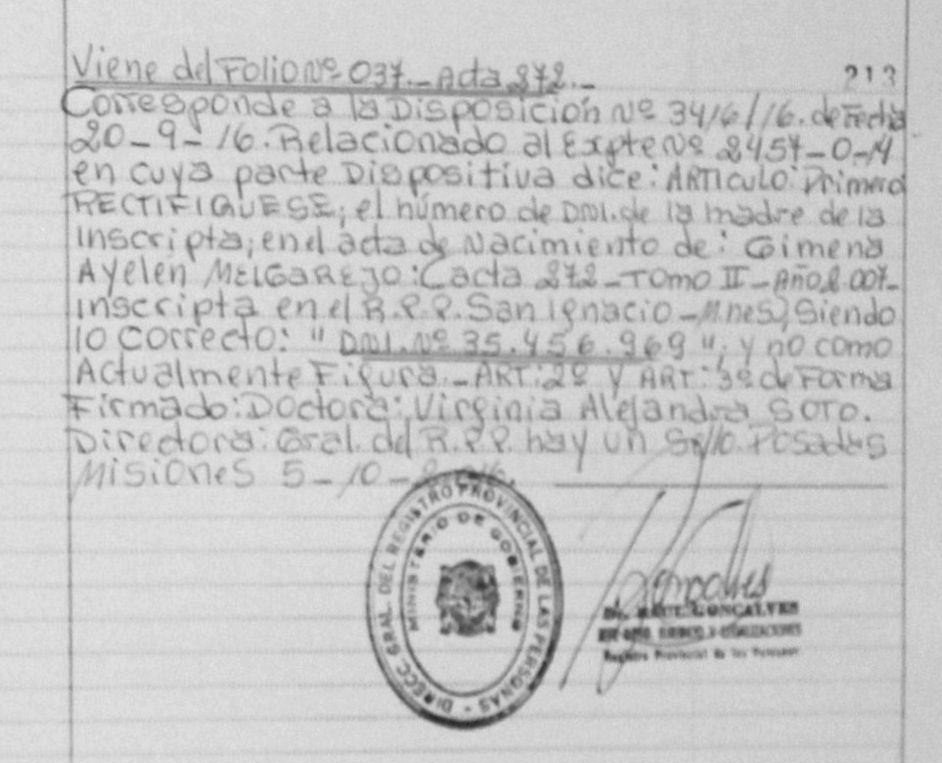 Viene del Folio Nº 037._ Acta 272._
213
Corresponde a la Disposición Nº 3416/16. de Fecha
20_9_16. Relacionado al Expte Nº 2457_0_14
en cuya parte Dispositiva dice: ARTICULO: Primero
RECTIFIQUESE; el número de DNI. de la madre de la
inscripta; en el acta de Nacimiento de: Gimena
Ayelen MELGAREJO: Cacta 272_TOMO II_Año 2.007_
inscripta en el R.P.P. San Ignacio_Mnes) Siendo
lo correcto: "DNI. Nº 35.456.969"; y no como
Actualmente Figura._ ART: 2º y ART: 3º de Forma
Firmado: Doctora: Virginia Alejandra SOTO.
Directora: Gral. del R.P.P. hay un Sello. Posadas
Misiones 5_10_
DIRECC. GRAL. DEL REGISTRO PROVINCIAL DE LAS PERSONAS -
MINISTERIO DE GOBIERNO
GONCALVES
Registro Provincial de las Personas